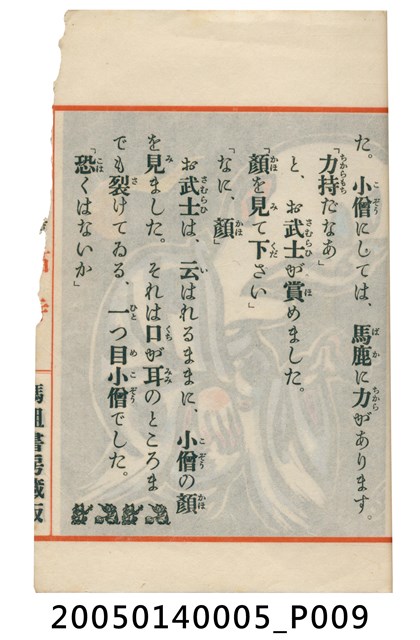 た。小僧にしては、馬鹿に力があります。
「力持だなあ」
と、お武士が賞めました。
「顔を見て下さい」
「なに、顔」
お武士は、云はれるままに、小僧の顔
を見ました。それは口が耳のところま
でも裂けてゐる、一つ目小僧でした。
「恐くはないか」
媽祖書房藏版
20050140005_P009